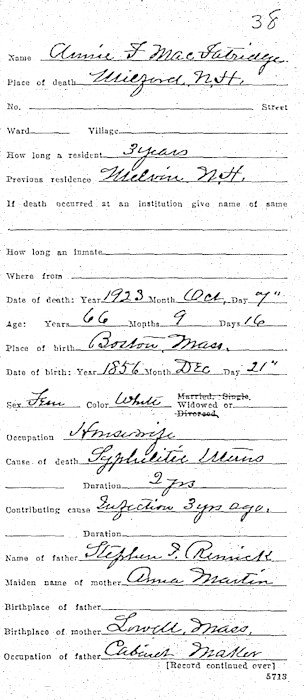 38
Name Annie F Mac Fatridge
Place of death Milford, N.H.
No. Street
Ward Village
How long a resident 3 years
Previous residence Melvin N.H.
If death occurred at an institution give name of same
How long an inmate
Where from
Date of death: Year 1923 Month Oct, Day 7"
Age: Years 66 Months 9 Days 16
Place of birth Boston, Mass.
Date of birth: Year 1856 Month DEC Day 21"
Sex Fem Color White Married, Single,
Widowed or
Divorced,
Occupation Housewife
Cause of death Syphilitic Uterus
Duration 2 yrs
Contributing cause Infection 3 yrs ago.
Duration
Name of father Stephen F. Remick
Maiden name of mother Anna Martin
Birthplace of father
Birthplace of mother Lowell, Mass.
Occupation of father Cabinet Maker
[Record continued over]
5713